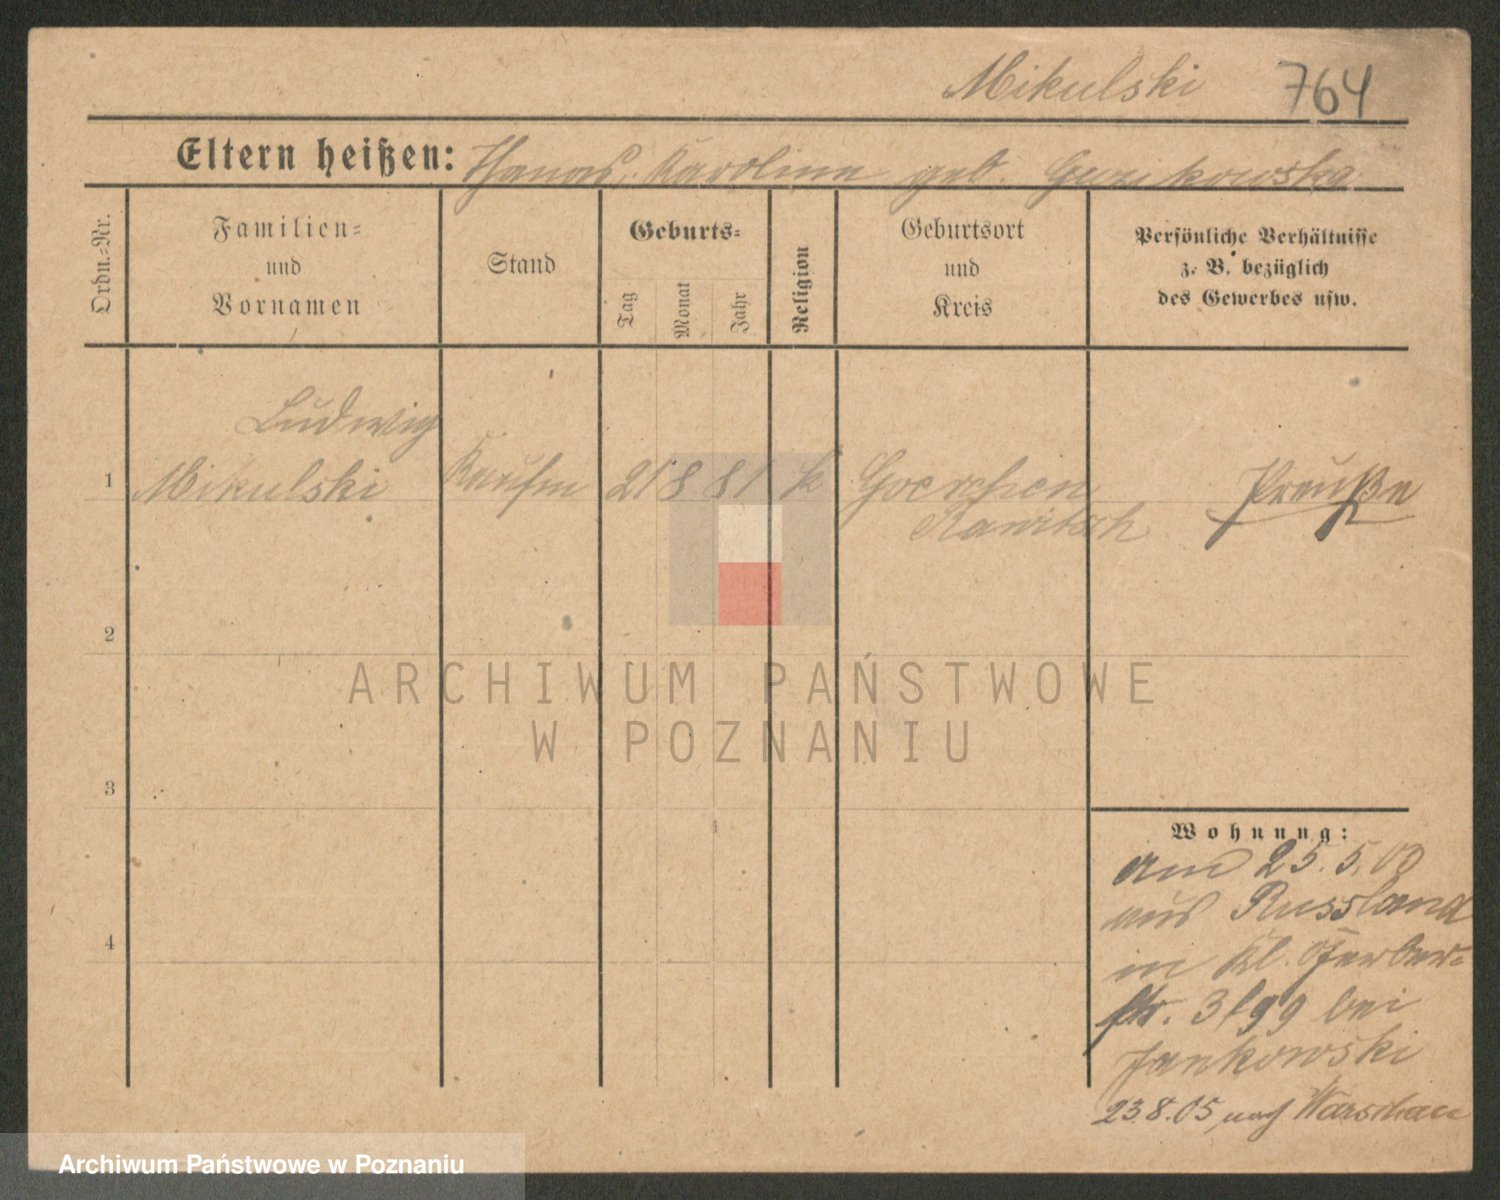 Mikulski 764
Eltern heißen: Karolina geb.
Ordn.-Nr.
Familien-
und
Vornamen
Stand
Geburts-
Tag
Monat
Jahr
Religion
Geburtsort
und
Kreis
Persönliche Verhältnisse
z. B. bezüglich
des Gewerbes usw.
Ludwig
1 Mikulski Kaufm 21 8 81 k Goerchen Preuße
Rawitsch
2
3
4
ARCHIWUM PAŃSTWOWE
W POZNANIU
Wohnung:
am 25. 5. 00
aus Russland
in Kl. Gerber-
str. 3/99 bei
Jankowski
23.8.05, nach Warschau
Archiwum Państwowe w Poznaniu